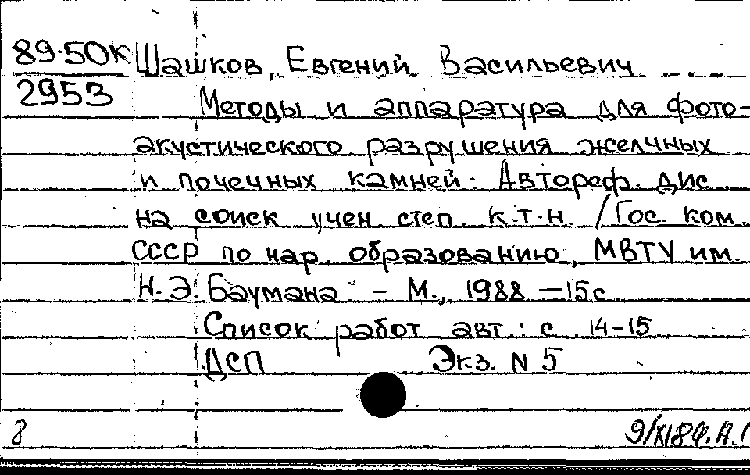 89-50к Шашков, Евгений Васильевич
2953
Методы и аппаратура для фото-
акустического разрушения желчных
и почечных камней. Автореф. дис
на соиск учен степ. к.т.н. /Гос. ком.
СССР по нар. образованию, МВТУ им.
Н.Э. Баумана - М., 1988 -15с
Список работ авт.: с 14-15
ДСП Экз. N 5
8